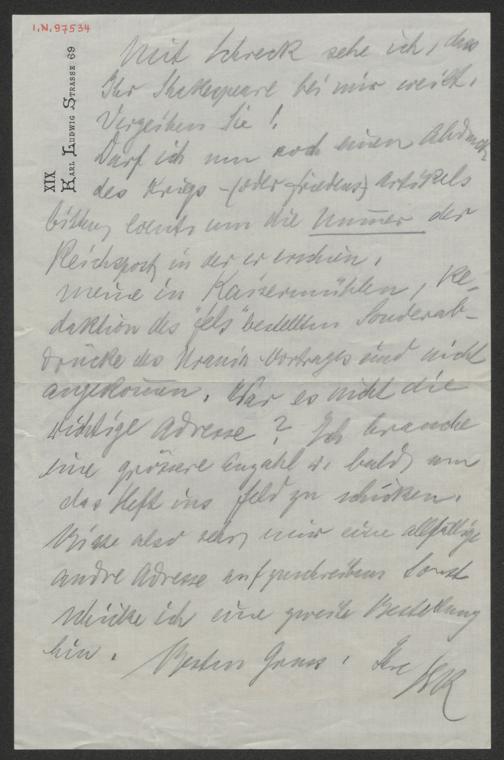 I.N. 97534
XIX
Karl Ludwig Strasse 69
Mit Schreck sehe ich, dass
Ihr Shakespeare bei mir weilt.
Verzeihen Sie!
Darf ich um noch einen Abdruck
des Kriegs-(oder Friedens) Artikels
bitten, event. um die Nummer der
Reichspost, in der er erschien.
Meine in Kaisermühlen, Re-
daktion des "Fels" bestellten Sonderab-
drücke des Urania-Vortrages sind nicht
angekommen. War es nicht die
richtige Adresse? Ich brauche
eine grössere Anzahl u. bald, um
das Heft ins Feld zu schicken.
Bitte also sehr, mir eine allfällige
andre Adresse aufzuschreiben. Sonst
schicke ich eine zweite Bestellung
hin.
Besten Gruss, Ihre
EK